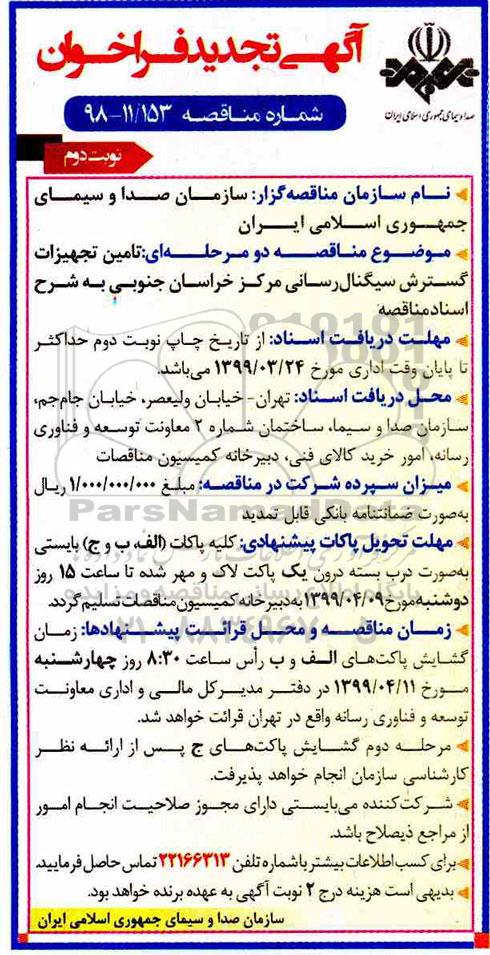 آگهی تجدید فراخوان
صدا و سیمای جمهوری اسلامی ایران
شماره مناقصه ۱۱/۱۵۳-۹۸
نوبت دوم
نـام سازمان مناقصه‌گزار: سازمـان صـدا و سیمـای
جمهـوری اسـلامـی ایـران
موضـوع مناقصـه دو مرحلـه‌ای:تامین تجهیزات
گسترش سیگنال‌رسانی مرکز خراسان جنوبی به شرح
اسناد مناقصه
مهلـت دریافـت اسـناد: از تاریخ چاپ نوبت دوم حداکثر
تا پایان وقت اداری مورخ ۱۳۹۹/۰۳/۲۴ می‌باشد.
محـل دریافت اسـناد: تهران- خیابان ولیعصر، خیابان جام‌جم،
سازمان صدا و سیما، ساختمان شماره ۲ معاونت توسعه و فناوری
رسانه، امور خرید کالای فنی، دبیرخانه کمیسیون مناقصات
میـزان سپرده شرکت در مناقصه: مبلـغ ۱/۰۰۰/۰۰۰/۰۰۰ ریـال
به‌صورت ضمانتنامه بانکی قابل تمدید
مهلت تحویل پاکات پیشنهادی: کلیه پاکات (الف، ب و ج) بایستی
به‌صورت درب بسته درون یک پاکت لاک و مهر شده تا ساعت ۱۵ روز
دوشنبه مورخ ۱۳۹۹/۰۴/۰۹ به دبیرخانه کمیسیون مناقصات تسلیم گردد.
زمـان مناقصـه و محـل قرائـت پیشـنهادها: زمـان
گشایش پاکت‌های الـف و ب رأس ساعت ۸:۳۰ روز چهارشـنبه
مـورخ ۱۳۹۹/۰۴/۱۱ در دفتـر مدیـرکل مالـی و اداری معاونـت
توسعه و فناوری رسانه واقع در تهران قرائت خواهد شد.
مرحلـه دوم گشـایش پاکت‌هـای ج پـس از ارائـه نظـر
کارشناسی سازمان انجام خواهد پذیرفت.
شرکت‌کننده می‌بایستی دارای مجوز صلاحیت انجام امور
از مراجع ذیصلاح باشد.
برای کسب اطلاعات بیشتر با شماره تلفن ۲۲۱۶۶۳۱۳ تماس حاصل فرمایید.
بدیهی است هزینه درج ۲ نوبت آگهی به عهده برنده خواهد بود.
سازمان صدا و سیمای جمهوری اسلامی ایران
ParsNamadData